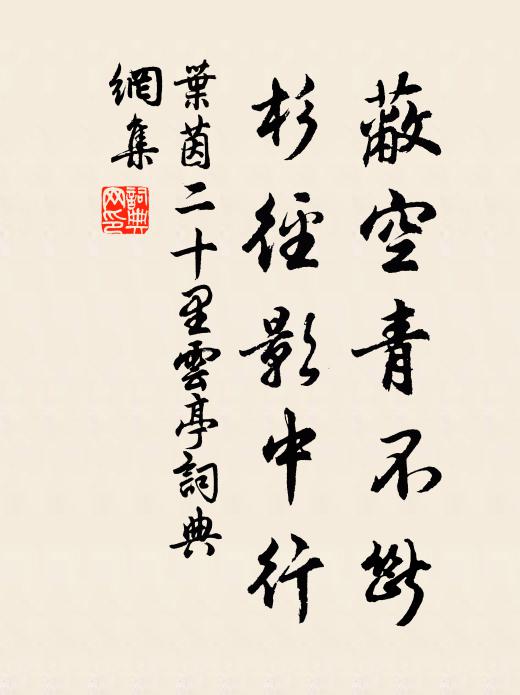 蔽空青不斷
杉徑影中行
葉茵二十里雲亭詞典
網集
詞典網印